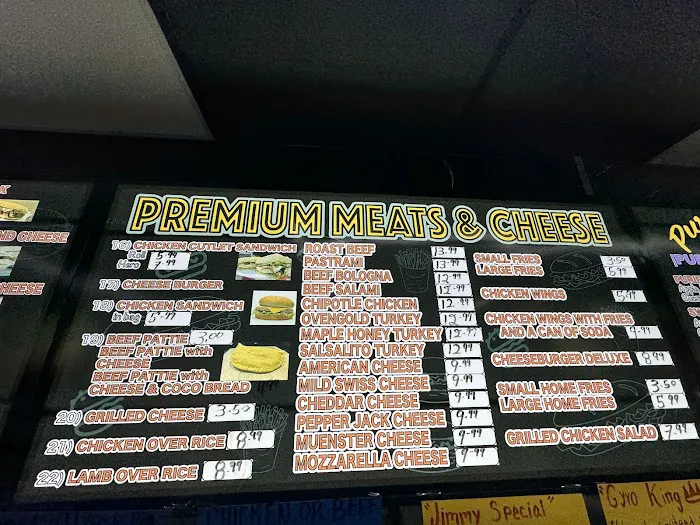 PREMIUM MEATS & CHEESE
16) CHICKEN CUTLET SANDWICH
Roll 5.99
Hero 9.99
17) CHEESE BURGER
18) CHICKEN SANDWICH
in bag 5.99
19) BEEF PATTIE 3.00
BEEF PATTIE with
CHEESE
BEEF PATTIE with
CHEESE & COCO BREAD
20) GRILLED CHEESE 3.50
21) CHICKEN OVER RICE 8.99
22) LAMB OVER RICE 8.99
ROAST BEEF 13.99
PASTRAMI 13.99
BEEF BOLOGNA 12.99
BEEF SALAMI 12.99
CHIPOTLE CHICKEN 12.99
OVENGOLD TURKEY 12.99
MAPLE HONEY TURKEY 12.99
SALSALITO TURKEY 12.99
AMERICAN CHEESE 9.99
MILD SWISS CHEESE 9.99
CHEDDAR CHEESE 9.99
PEPPER JACK CHEESE 9.99
MUENSTER CHEESE 9.99
MOZZARELLA CHEESE 9.99
SMALL FRIES 3.50
LARGE FRIES 5.99
CHICKEN WINGS 5.99
CHICKEN WINGS WITH FRIES
AND A CAN OF SODA 9.99
CHEESEBURGER DELUXE 8.99
SMALL HOME FRIES 3.50
LARGE HOME FRIES 5.99
GRILLED CHICKEN SALAD 7.99
CHEESE
CHICKEN OR BEEF
"Jimmy Special"
"Gyro King